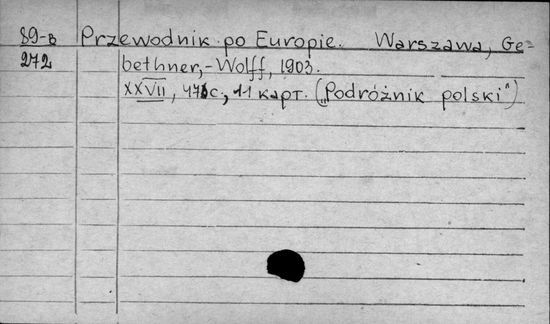 89-в Przewodnik po Europie. Warszawa, Ge=
272 bethner,-Wolff, 1903.
XXVII, 476с., 11 карт. („Podróżnik polski")